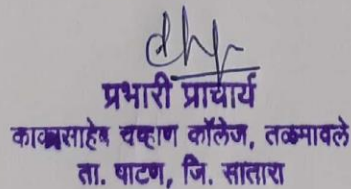 प्रभारी प्राचार्य
काकासाहेब चव्हाण कॉलेज, तळमावले
ता. पाटण, जि. सातारा